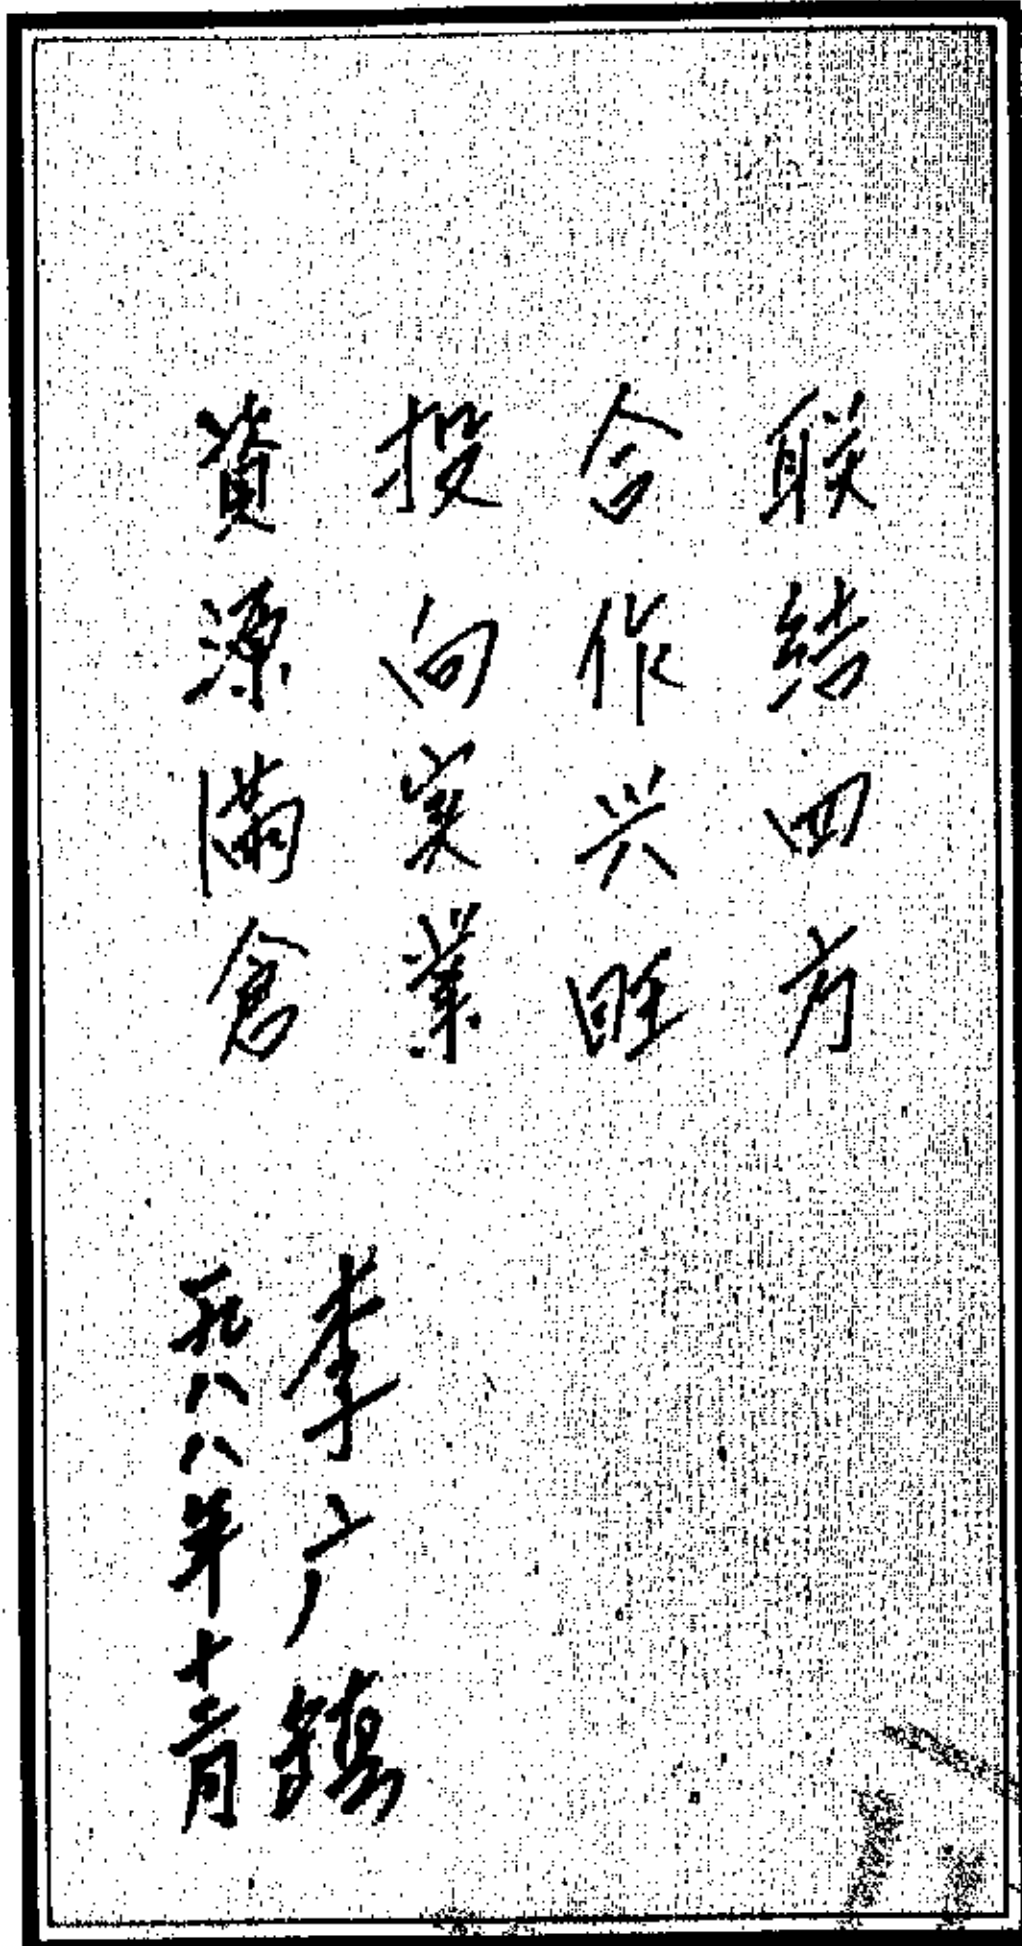 联结四方
合作兴旺
投向实业
資源满倉
李广镇
一九八八年十二月